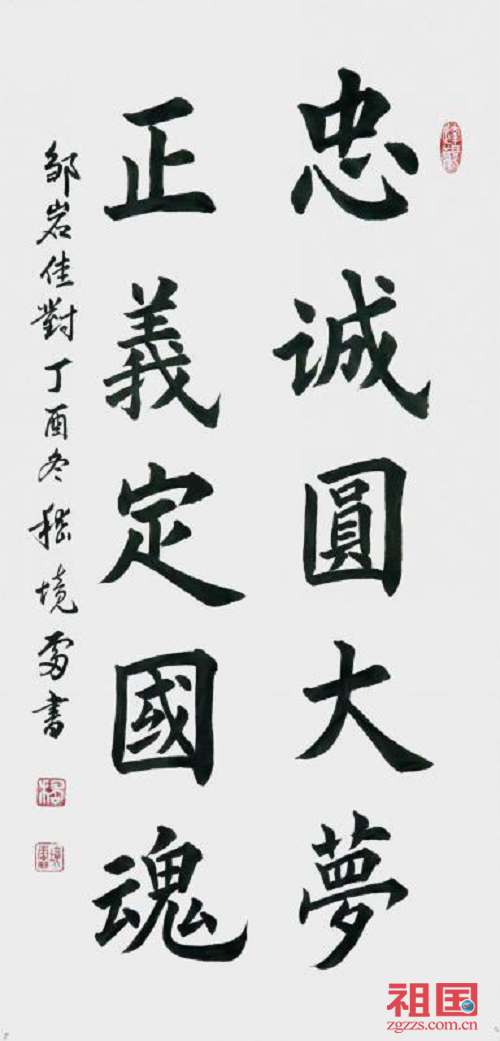 忠诚圓大夢
正義定國魂
邹岩佳對丁酉冬嵇境雷書
祖国
zgzzs.com.cn